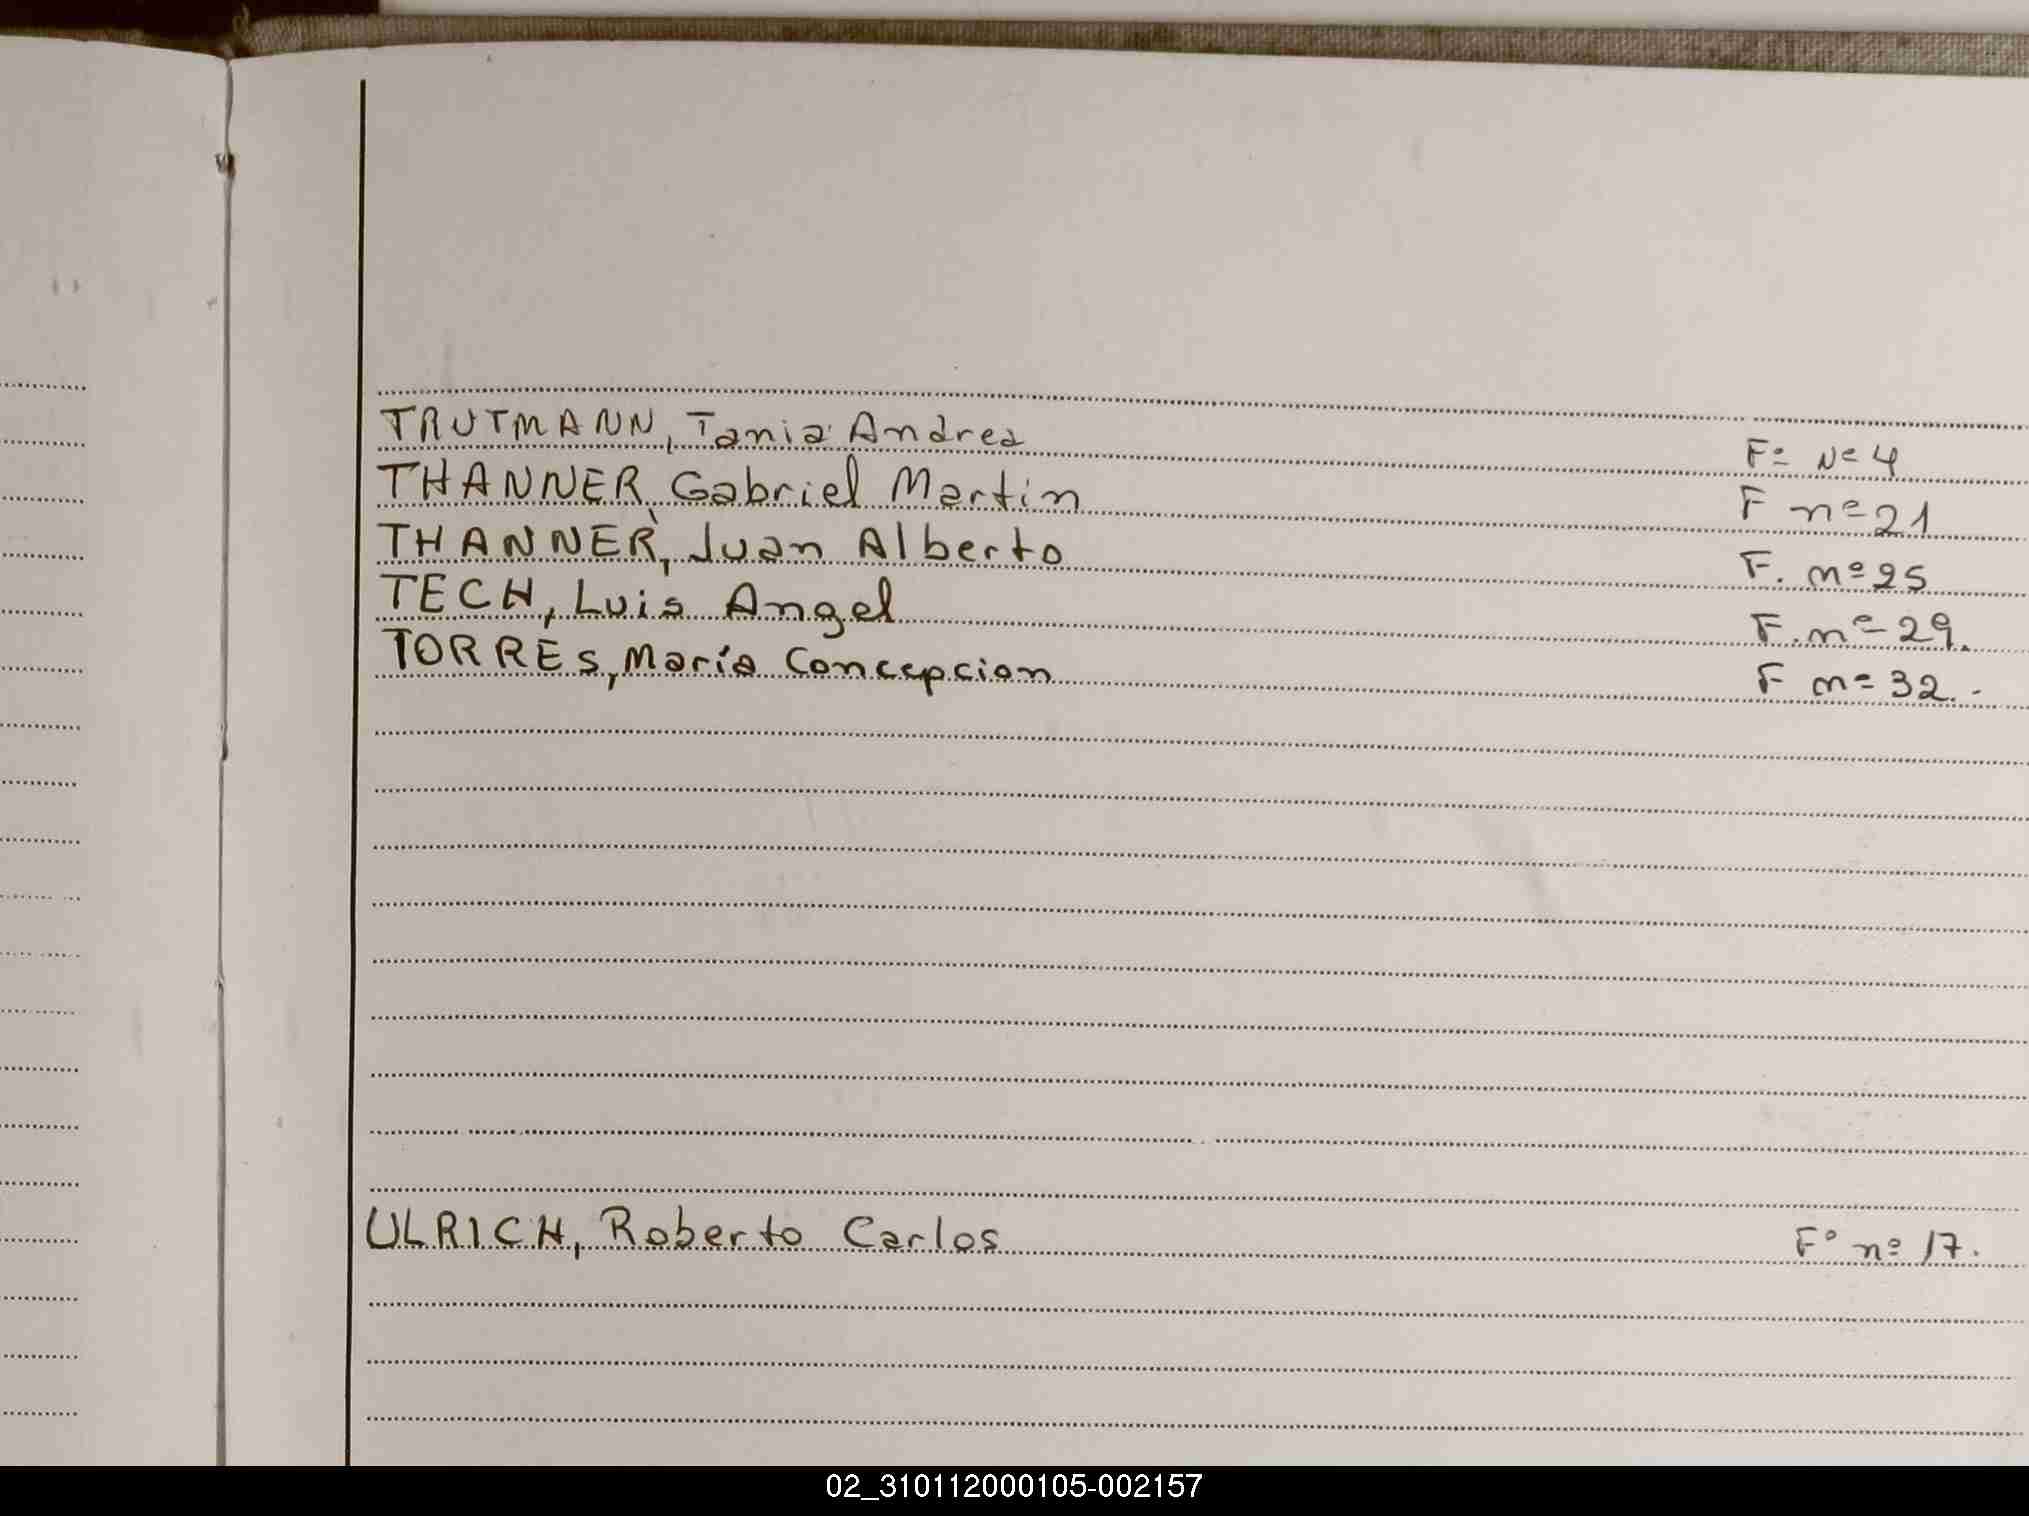 TRUTMANN, Tania Andrea Fº Nº 4
THANNER, Gabriel Martin F nº 21
THANNER, Juan Alberto F. nº 25
TECH, Luis Angel F. nº 29.
TORRES, María Concepcion F nº 32.-
ULRICH, Roberto Carlos Fº nº 17.
02_310112000105-002157